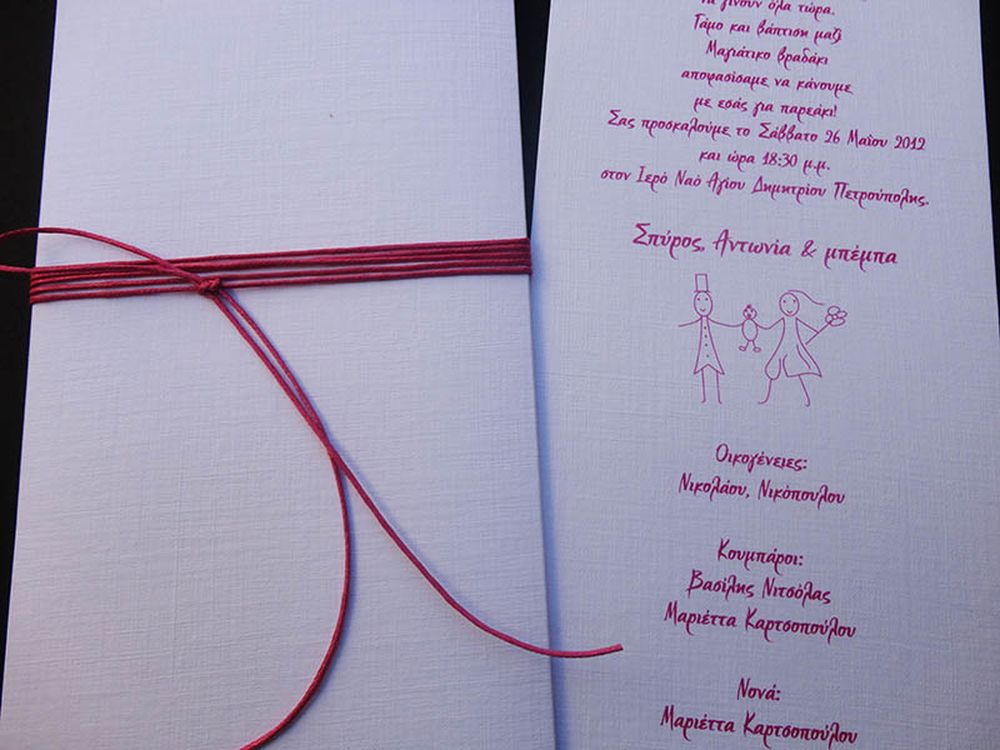 να γίνουν όλα τώρα.
Γάμο και βάπτιση μαζί
Μαγιάτικο βραδάκι
αποφασίσαμε να κάνουμε
με εσάς για παρεάκι!
Σας προσκαλούμε το Σάββατο 26 Μαΐου 2012
και ώρα 18:30 μ.μ.
στον Ιερό Ναό Αγίου Δημητρίου Πετρούπολης.
Σπύρος, Αντωνία & μπέμπα
Οικογένειες:
Νικολάου, Νικόπουλου
Κουμπάροι:
Βασίλης Νιτσόλας
Μαριέττα Καρτσοπούλου
Νονά:
Μαριέττα Καρτσοπούλου